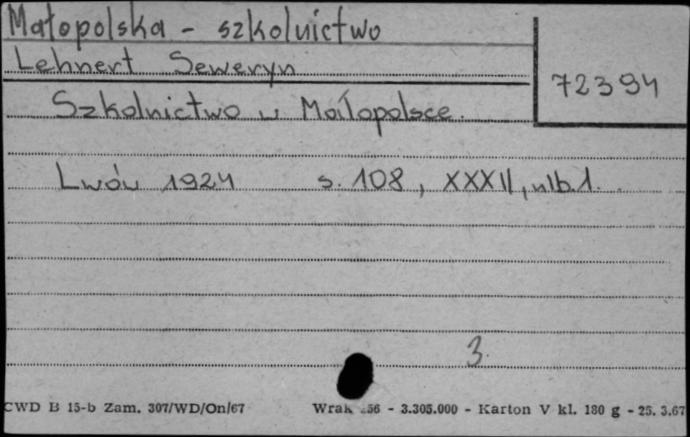 Małopolska - szkolnictwo
Lehnert Seweryn
72394
Szkolnictwo w Małopolsce.
Lwów 1924 s. 108, XXXII, nlb.1.
3.
CWD B 15-b Zam. 307/WD/On/67 - 3.305.000 - Karton V kl. 180 g - 25. 3.67